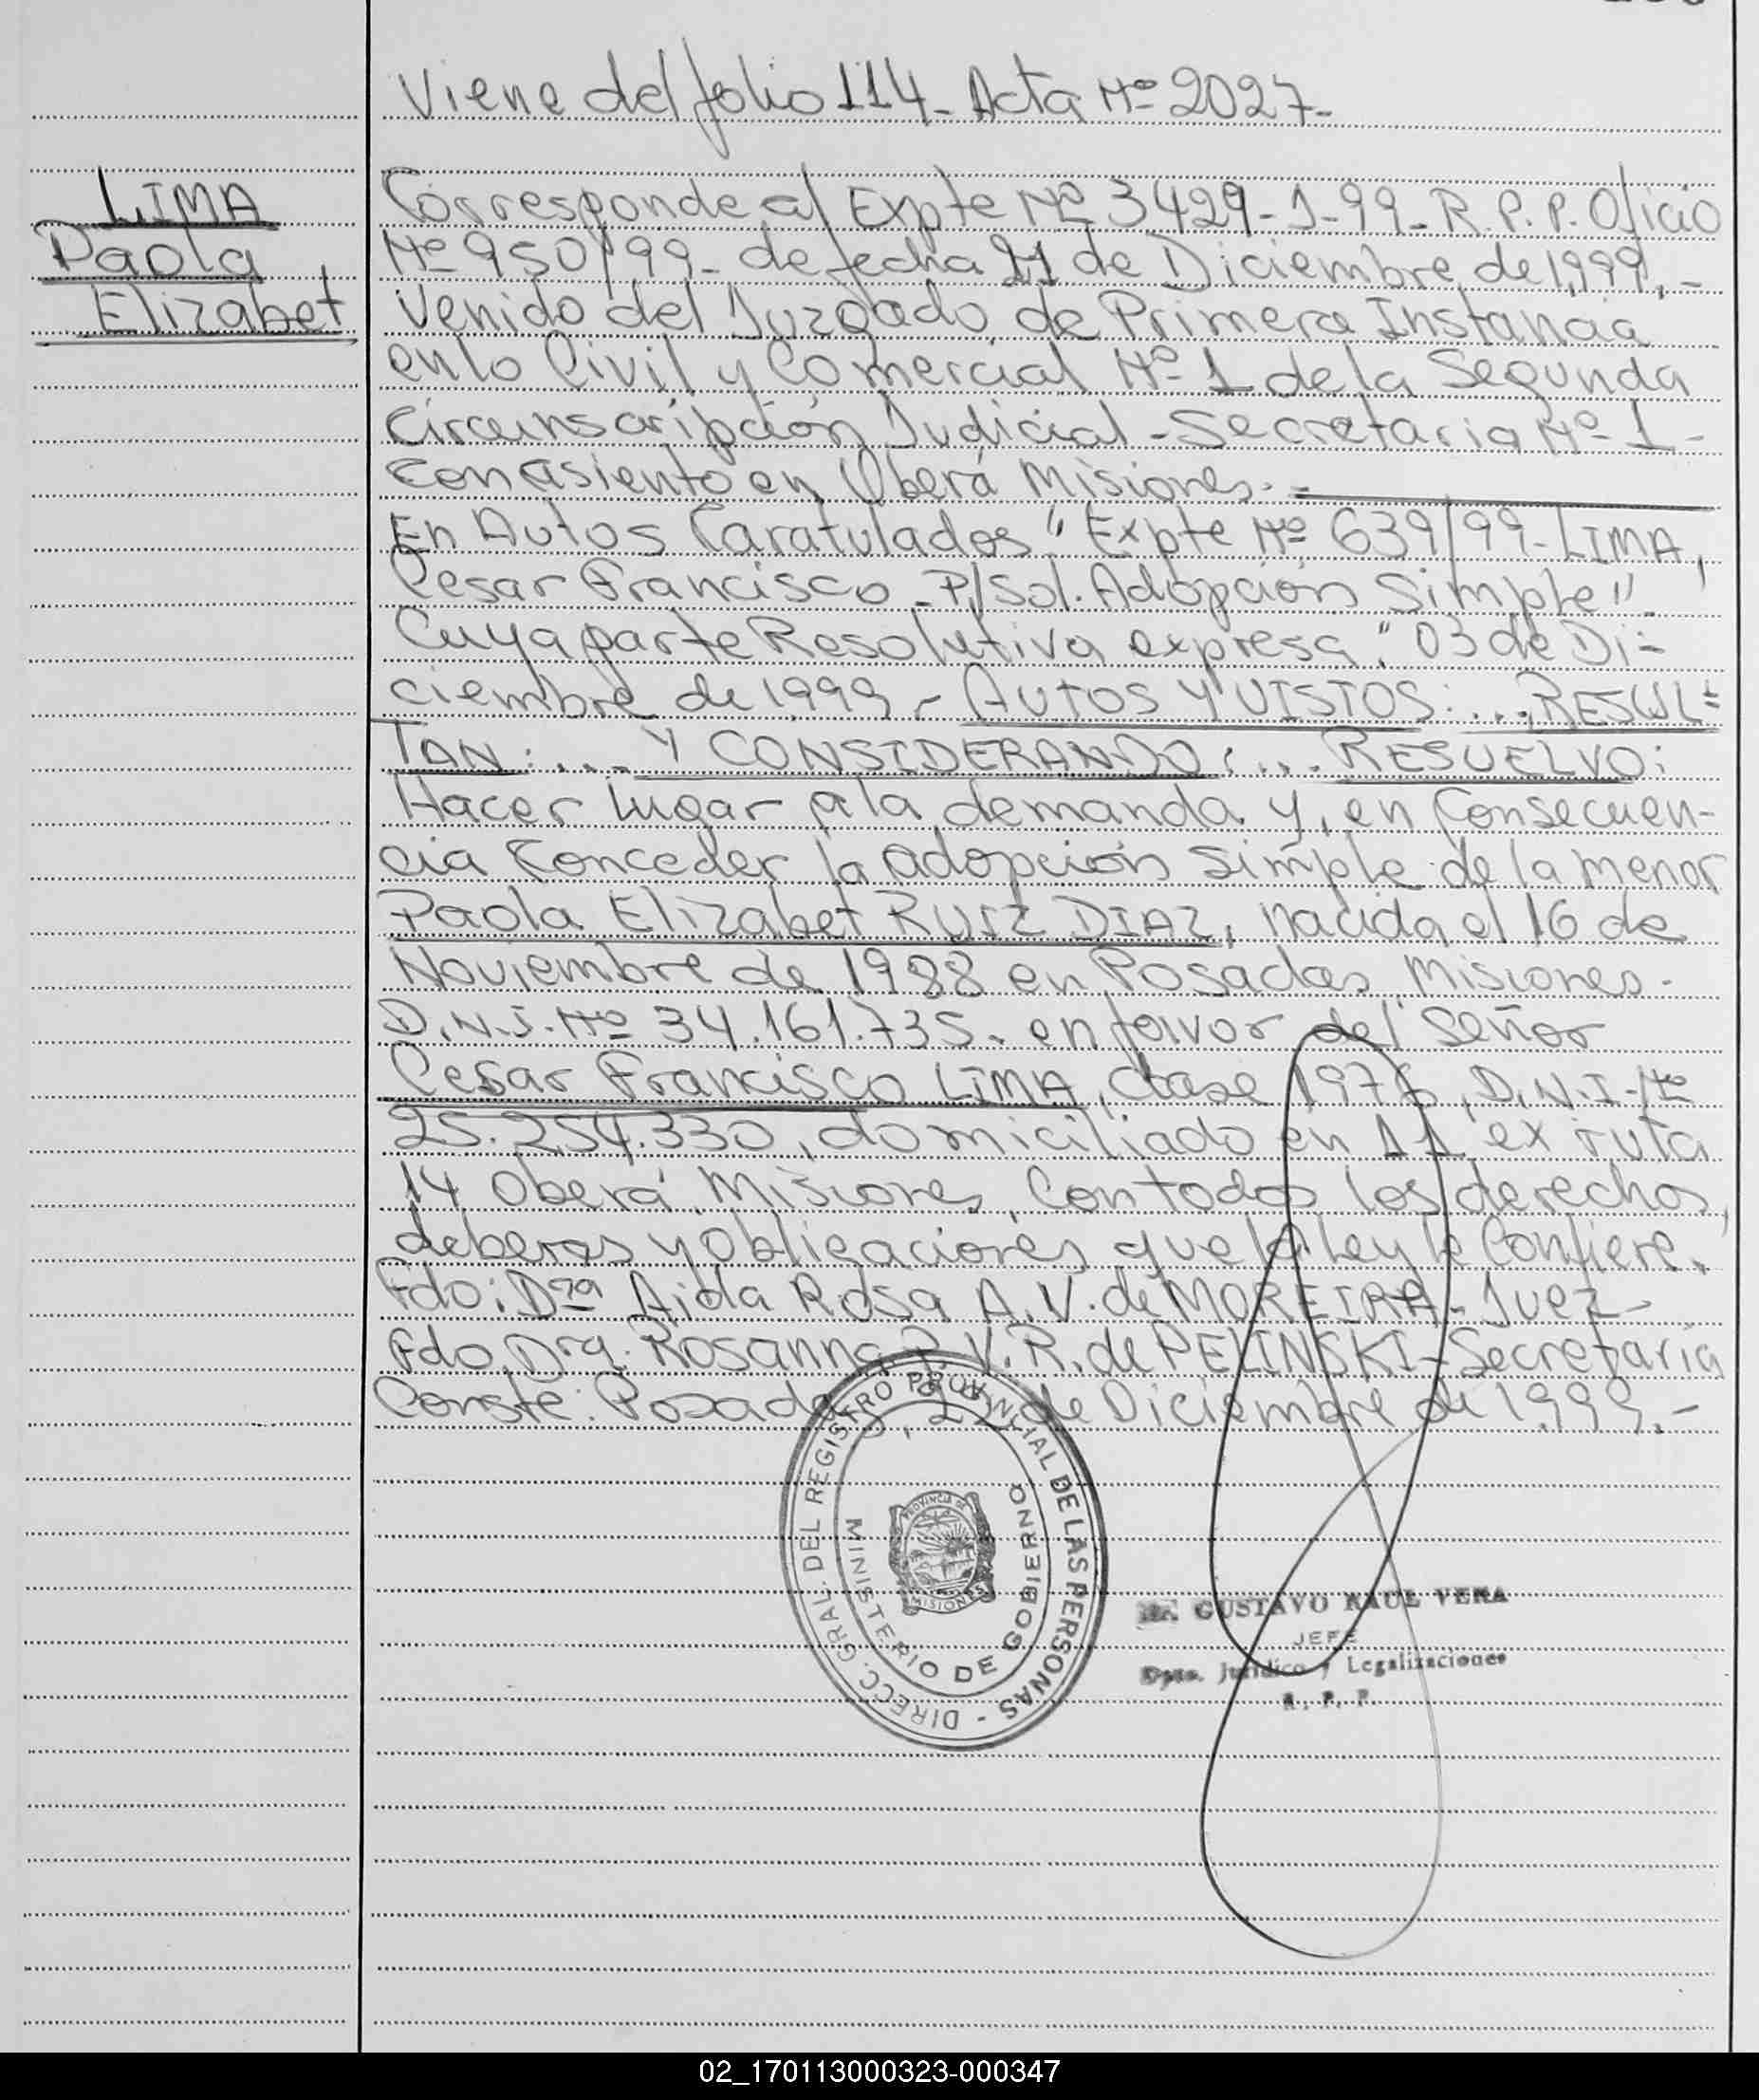 Viene del folio 114- Acta Nº 2027-
LIMA
Paola
Elizabet
Corresponde al Expte Nº 3429-J-99- R.P.P. Oficio
Nº 950/99- de fecha 21 de Diciembre de 1,999,-
Venido del Juzgado de Primera Instancia
en lo Civil y Comercial Nº 1 de la Segunda
Circunscripción Judicial - Secretaria Nº 1-
con asiento en Oberá Misiones.-
En Autos Caratulados "Expte Nº 639/99- LIMA,
Cesar Francisco - P/Sol. Adopción Simple".
Cuya parte Resolutiva expresa: "03 de Di-
ciembre de 1999.- AUTOS Y VISTOS:... RESUL-
TAN:... Y CONSIDERANDO:... RESUELVO:
Hacer lugar a la demanda y, en Consecuen-
cia Conceder la adopción simple de la menor
Paola Elizabet RUIZ DIAZ, nacida el 16 de
Noviembre de 1988 en Posadas Misiones.
D.N.I. Nº 34.161.735. en favor del Señor
Cesar Francisco LIMA, clase 1976, D.N.I. Nº
25.254.330, domiciliado en 11 ex ruta
14 Oberá Misiones, Con todos los derechos,
deberes y obligaciones que la Ley le Confiere.
Fdo: Dra Aida Rosa A.V. de MOREIRA- Juez-
Fdo. Dra. Rosanna P. V. R. de PELINSKI- Secretaria
Conste: Posadas, de Diciembre de 1999.-
DIRECC. GRAL. DEL REGISTRO PROVINCIAL DE LAS PERSONAS -
MINISTERIO DE GOBIERNO
PROVINCIA DE
MISIONES
Dr. GUSTAVO RAUL VERA
JEFE
Dpto. Jurídico y Legalizaciones
R. P. P.
02_170113000323-000347